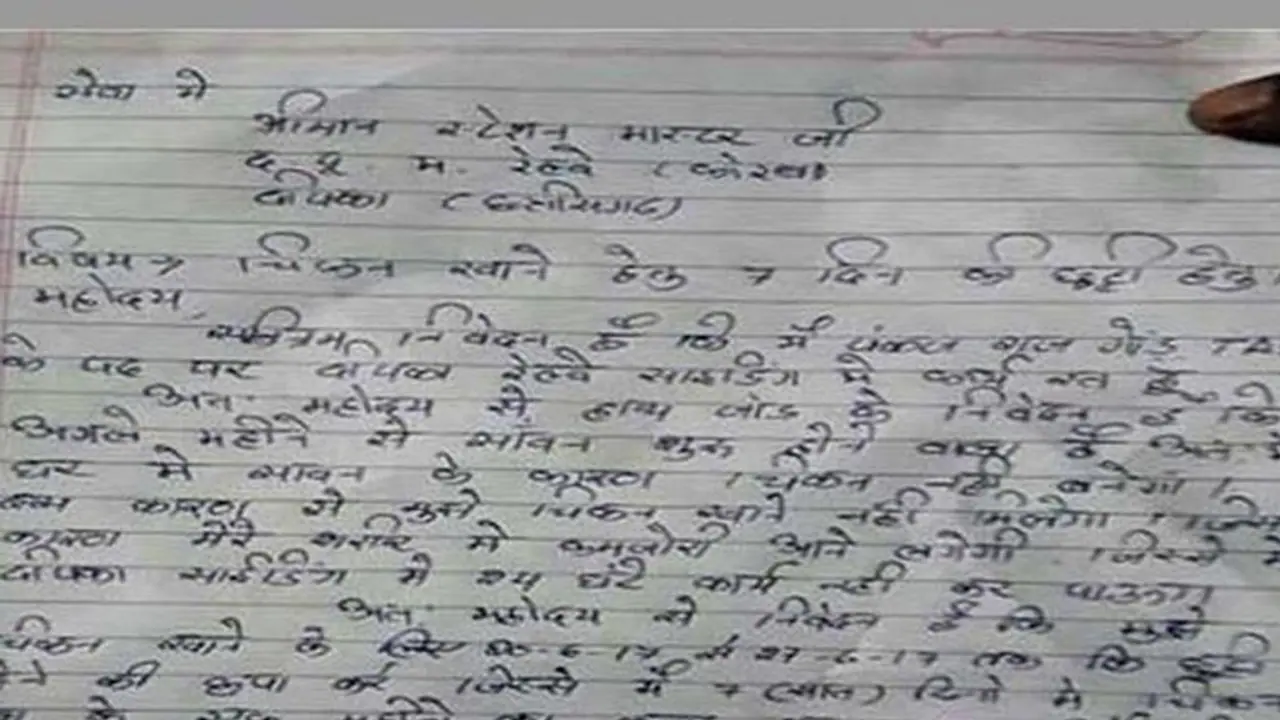 सेवा मे
श्रीमान स्टेशन मास्टर जी
द. पू. म. रेल्वे (कोरबा)
दीपिका (छत्तीसगढ)
विषय → चिकन खाने हेतु 7 दिन की छुट्टी हेतु।
महोदय,
निवेदन है कि मैं पंकज राज गोंड TA
के पद पर दीपिका रेल्वे साइडिंग मे कार्य रत हूं
अतः महोदय से हाथ जोड के निवेदन है कि
अगले महीने से सावन शुरू होने वाला है अतः
घर मे सावन के कारण चिकन नही बनेगा।
कारण से मुझे चिकन खाने नही मिलेगा।
कारण मेरे शरीर मे कमजोरी आने लगेगी जिस्से मै
दीपिका साईडिंग मे 24 घंटे कार्य नही कर पाऊंगा
अतः महोदय से निवेदन है कि मुझे
चिकन खाने के लिए 20-6-17 से 27-6-17 तक कि छुट्टी
देने की कृपा करे जिस्से मैं 7 (सात) दिनो मे चिकन
के